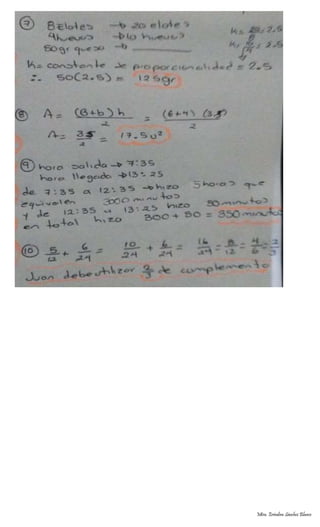 ⑦ 8 Elotes → 20 elotes K = 20/8 = 2.5
4 huevos → 10 huevos K = 10/4 = 2.5
50 gr queso → ________
K = constante de proporcionalidad = 2.5
∴ 50(2.5) = 125gr
⑧ A = (B+b)h / 2 = (6+4)(3.5) / 2
A = 35/2 = 17.5 u²
⑨ hora salida → 7:35
hora llegada → 13:25
de 7:35 a 12:35 → hizo 5 horas que
equivalen 300 minutos
y de 12:35 a 13:25 hizo 50 minutos
en total hizo 300 + 50 = 350 minutos
⑩ 5/12 + 6/24 = 10/24 + 6/24 = 16/24 = 8/12 = 4/6 = 2/3
Juan debe utilizar 2/3 de complemento